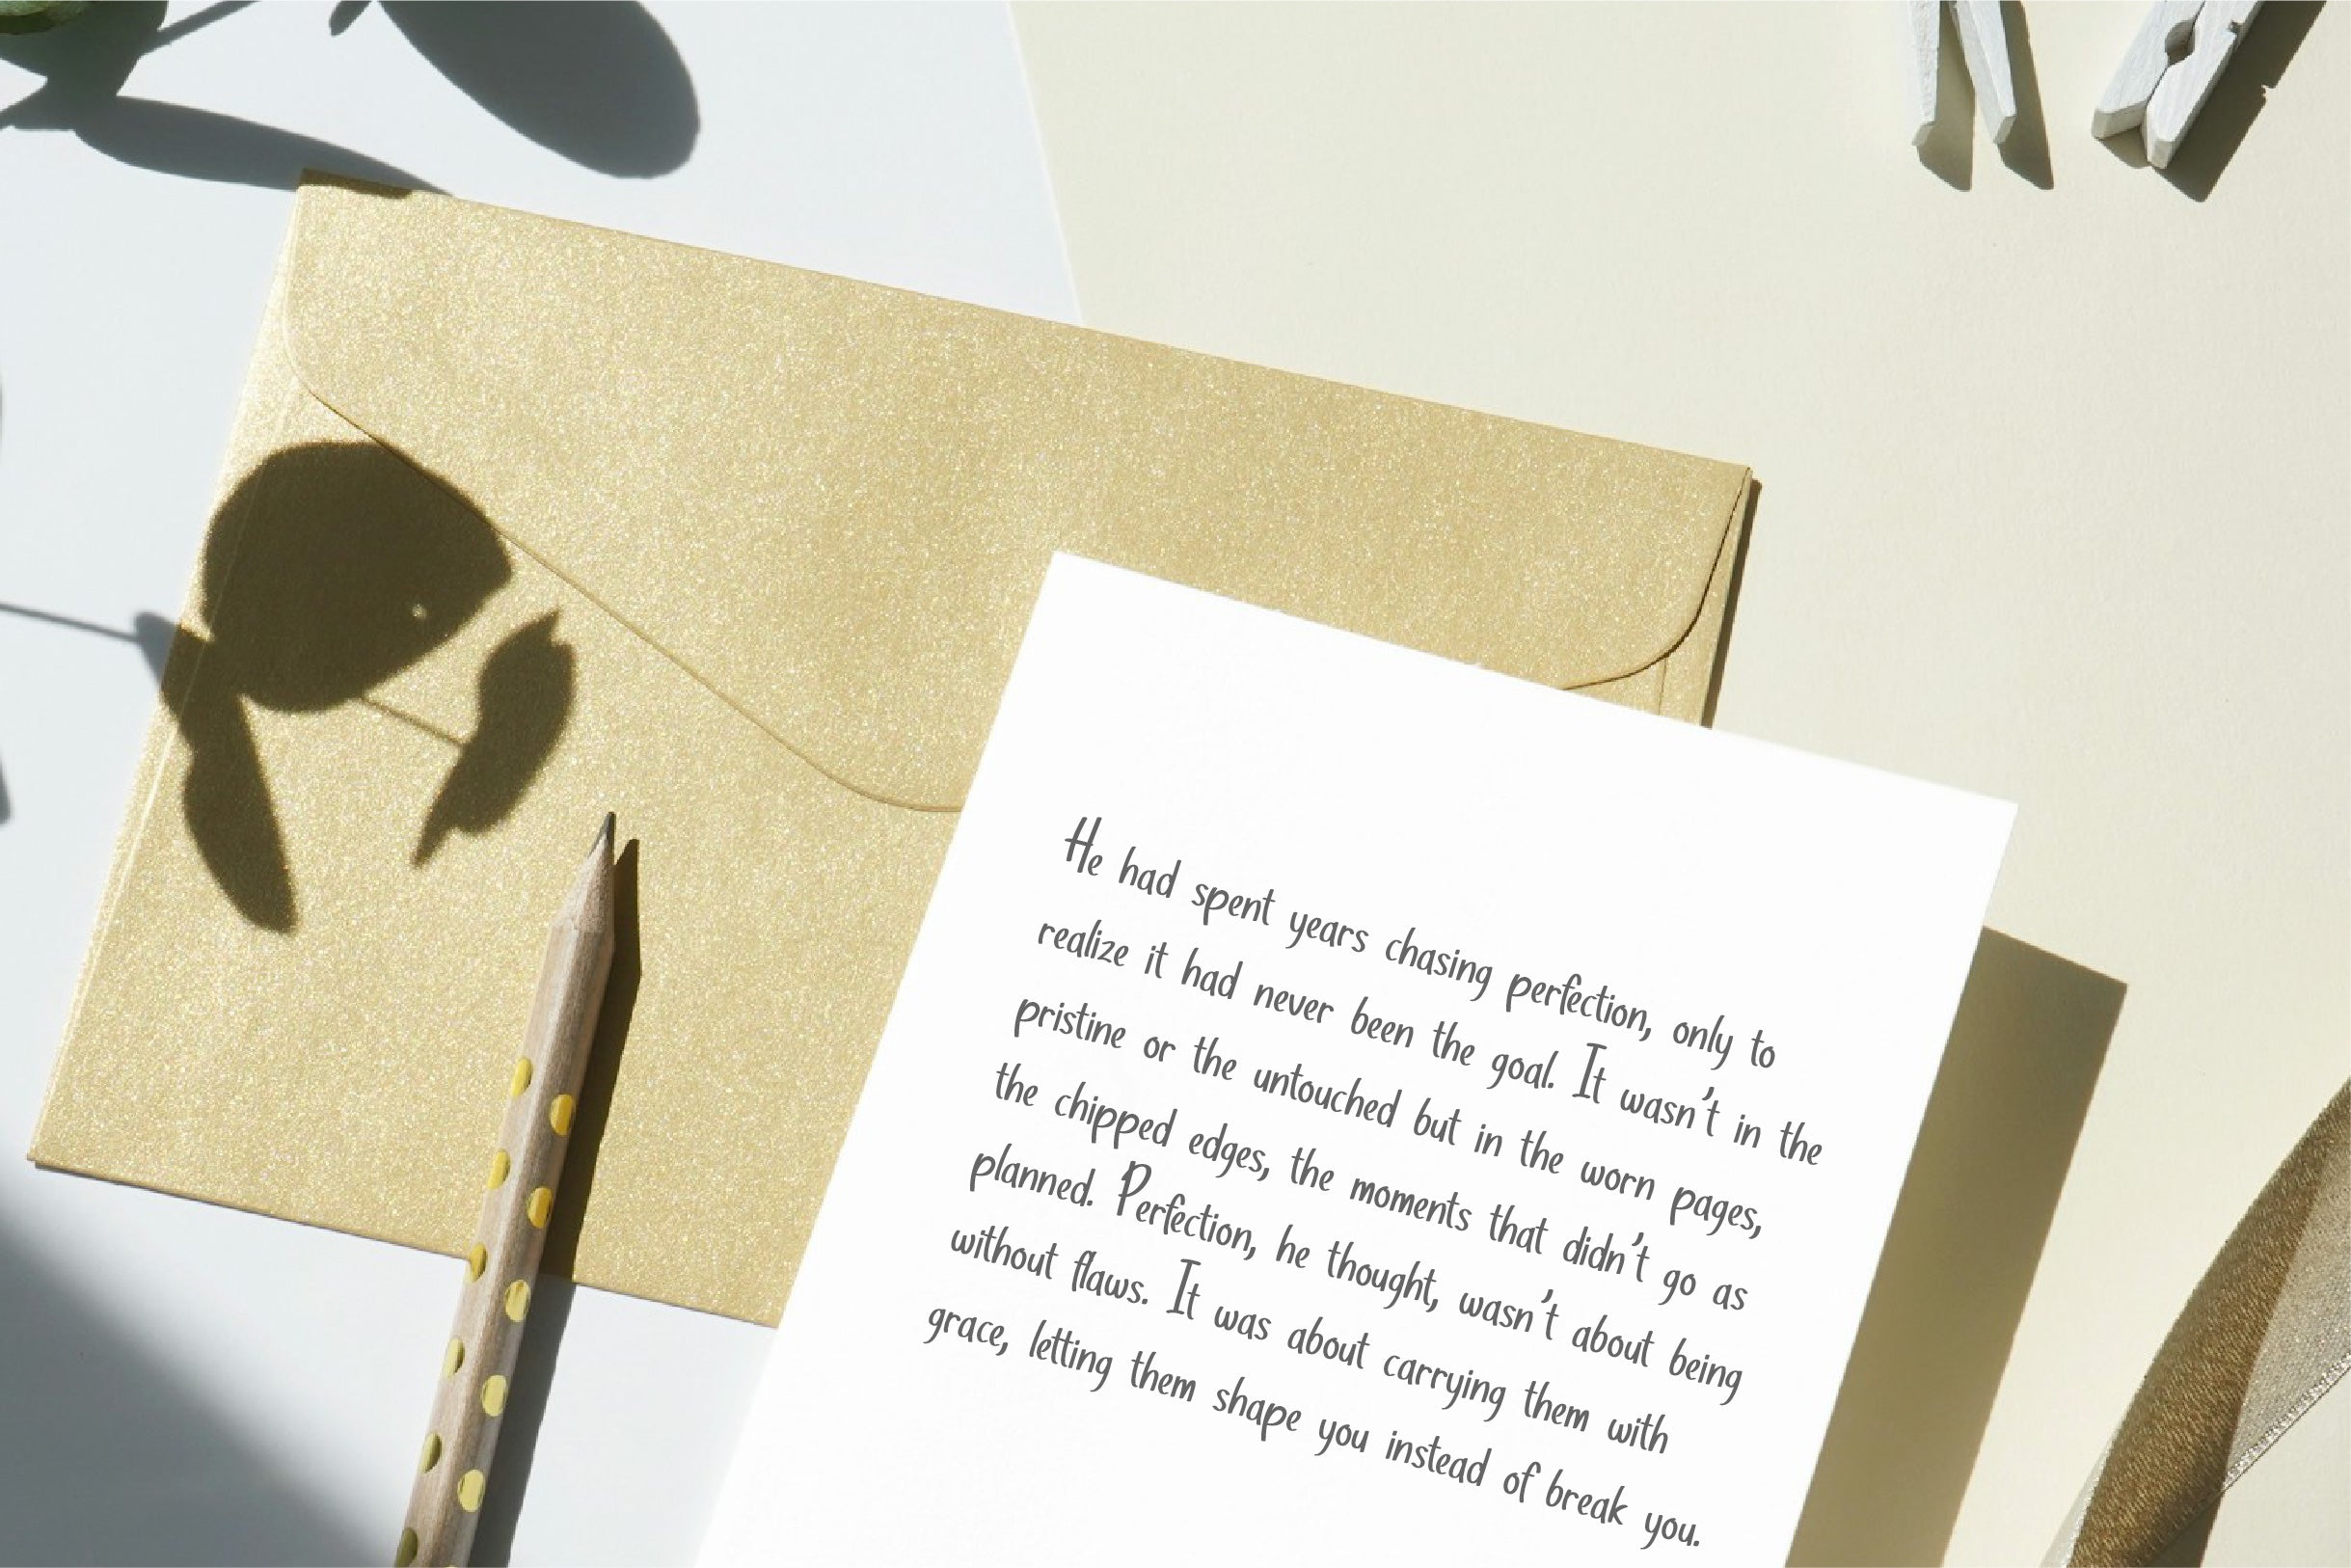 He had spent years chasing perfection, only to
realize it had never been the goal. It wasn't in the
pristine or the untouched but in the worn pages,
the chipped edges, the moments that didn't go as
planned. Perfection, he thought, wasn't about being
without flaws. It was about carrying them with
grace, letting them shape you instead of break you.